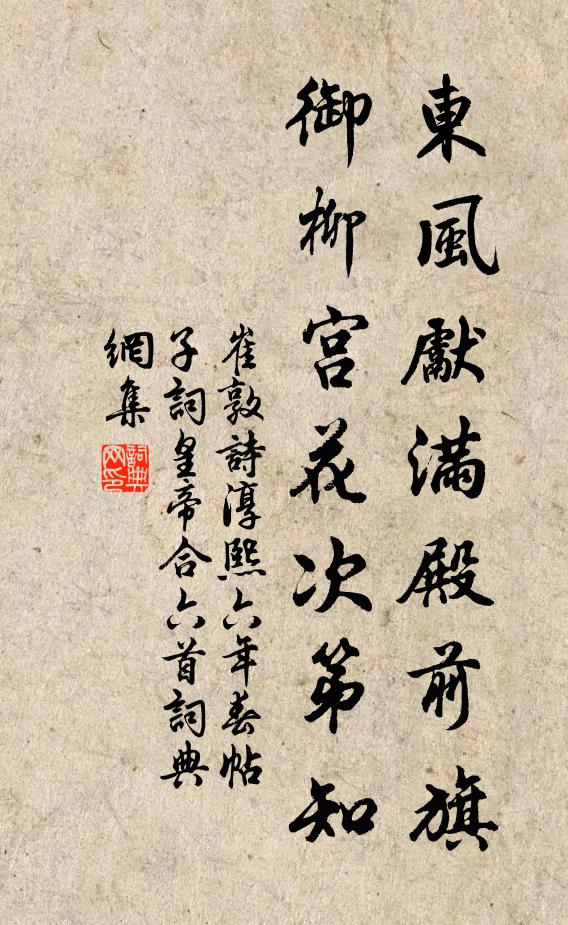 東風獻滿殿前旗
御柳宮花次第知
崔敦詩淳熙六年春帖
子詞皇帝合六首詞典
網集
詞典
网印